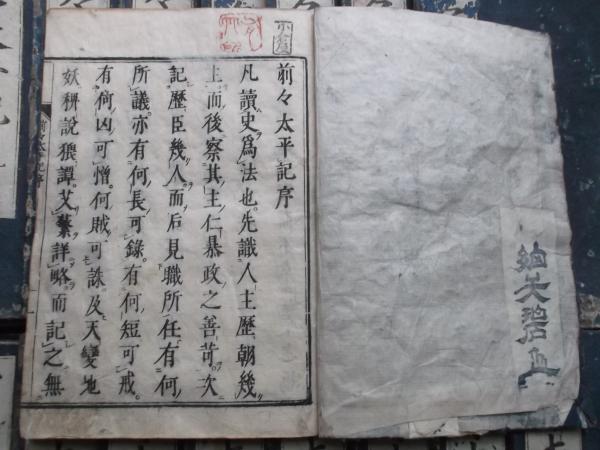 前々太平記序
凡讀史爲法也。先識人主歷朝幾
主。而後察其主仁暴政之善苛。次
記歷臣幾人。而后見職所任。有何
所議。亦有何長可錄。有何短可戒。
有何凶可憎。何賊可誅。及天變地
妖。稗說猥譚。艾蘩詳略。而記之無